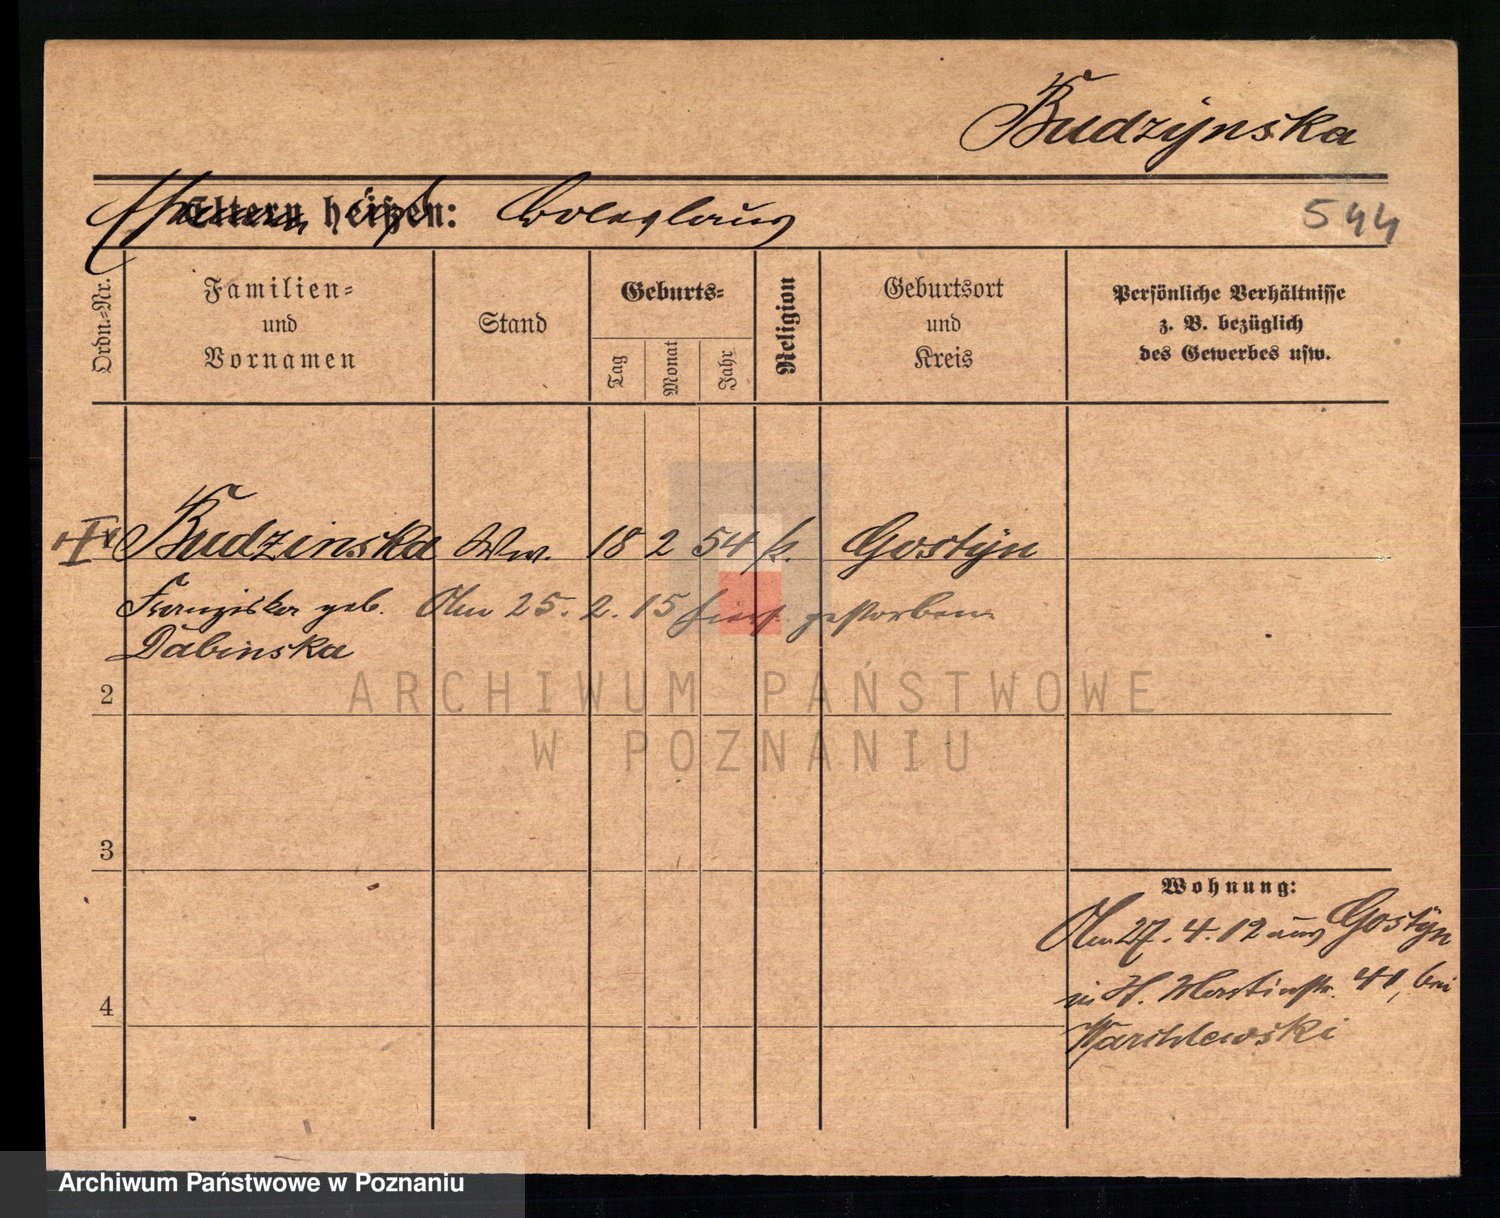 Budzÿnska
Eltern heißen: Boleslaus
544
Ordn.=Nr.
Familien=
und
Vornamen
Stand
Geburts=
Tag
Monat
Jahr
Religion
Geburtsort
und
Kreis
Persönliche Verhältnisse
z. B. bezüglich
des Gewerbes usw.
Budzinska Ww. 18 2 54 k. Gostÿn
Franziska geb. Am 25. 2. 15 hier gestorben.
Dabinska
2
ARCHIWUM PAŃSTWOWE
W POZNANIU
3
Wohnung:
Am 27. 4. 12 aus Gostÿn
4
in St. Martinstr. 41, bei
Marchlewski
Archiwum Państwowe w Poznaniu